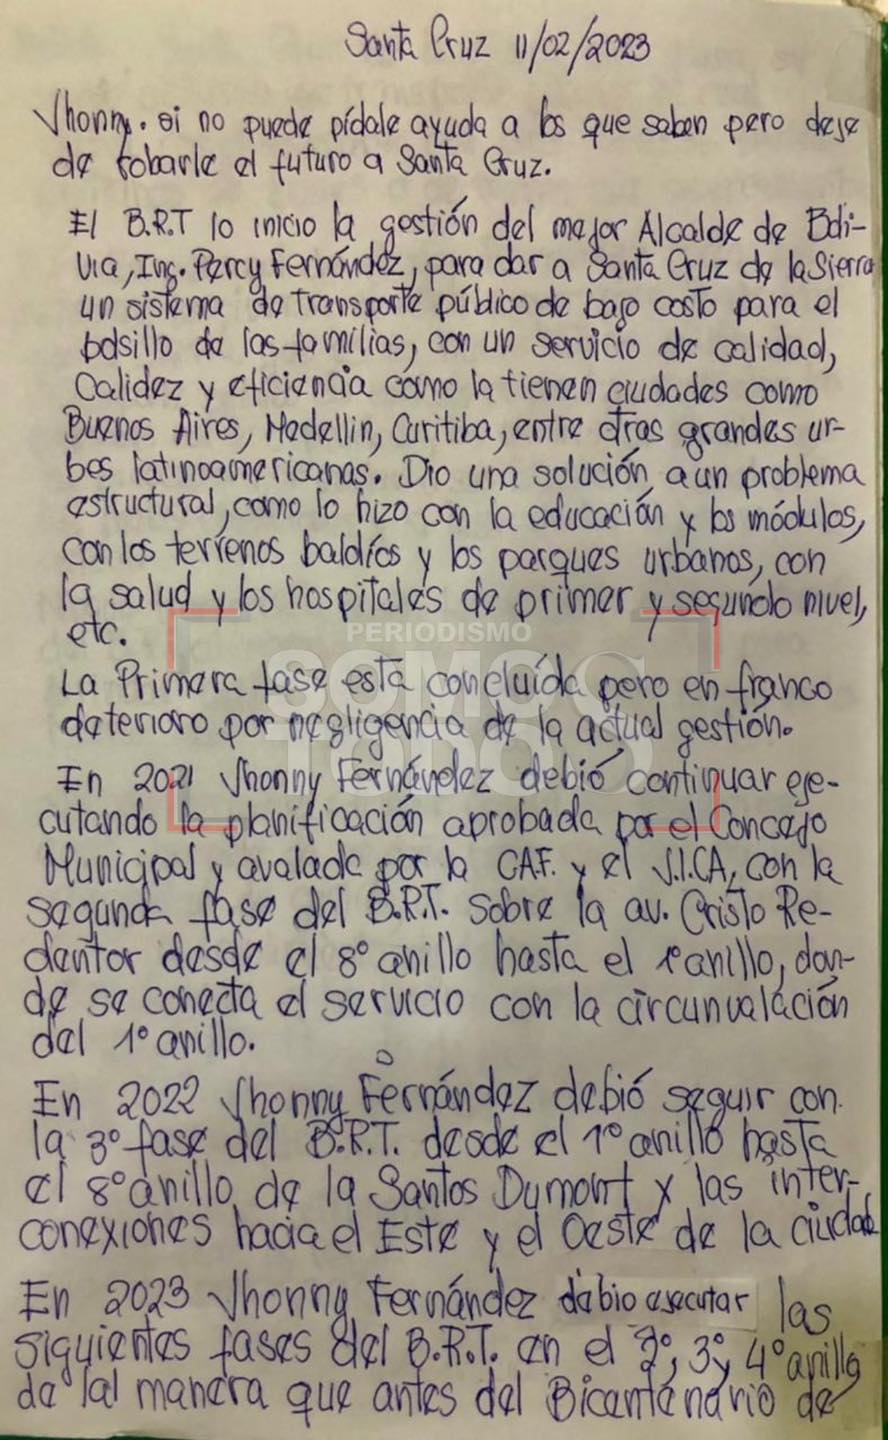 Santa Cruz 11/02/2023
Jhonny. si no puede pídale ayuda a los que saben pero deje
de robarle el futuro a Santa Cruz.
El B.R.T lo inicio la gestión del mejor Alcalde de Boli-
via, Ing. Percy Fernández, para dar a Santa Cruz de la Sierra
un sistema de transporte público de bajo costo para el
bolsillo de las familias, con un servicio de calidad,
Calidez y eficiencia como la tienen ciudades como
Buenos Aires, Medellin, Curitiba, entre otras grandes ur-
bes latinoamericanas. Dio una solución a un problema
estructural, como lo hizo con la educación y los módulos,
con los terrenos baldíos y los parques urbanos, con
la salud y los hospitales de primer y segundo nivel,
etc.
PERIODISMO
SOMOS
TODOS
La Primera fase está concluída pero en franco
deterioro por negligencia de la actual gestión.
En 2021 Jhonny Fernández debió continuar eje-
cutando la planificación aprobada por el Concejo
Municipal y avalada por la CAF. y el J.I.CA, con la
segunda fase del B.R.T. sobre la av. Cristo Re-
dentor desde el 8º anillo hasta el 1º anillo, don-
de se conecta el servicio con la circunvalación
del 1º anillo.
En 2022 Jhonny Fernández debió seguir con
la 3º fase del B.R.T. desde el 1º anillo hasta
el 8º anillo de la Santos Dumont y las inter-
conexiones hacia el Este y el Oeste de la ciudad
En 2023 Jhonny Fernández debio ejecutar las
siguientes fases del B.R.T. en el 2º, 3º y 4º anillo
de tal manera que antes del Bicentenario de